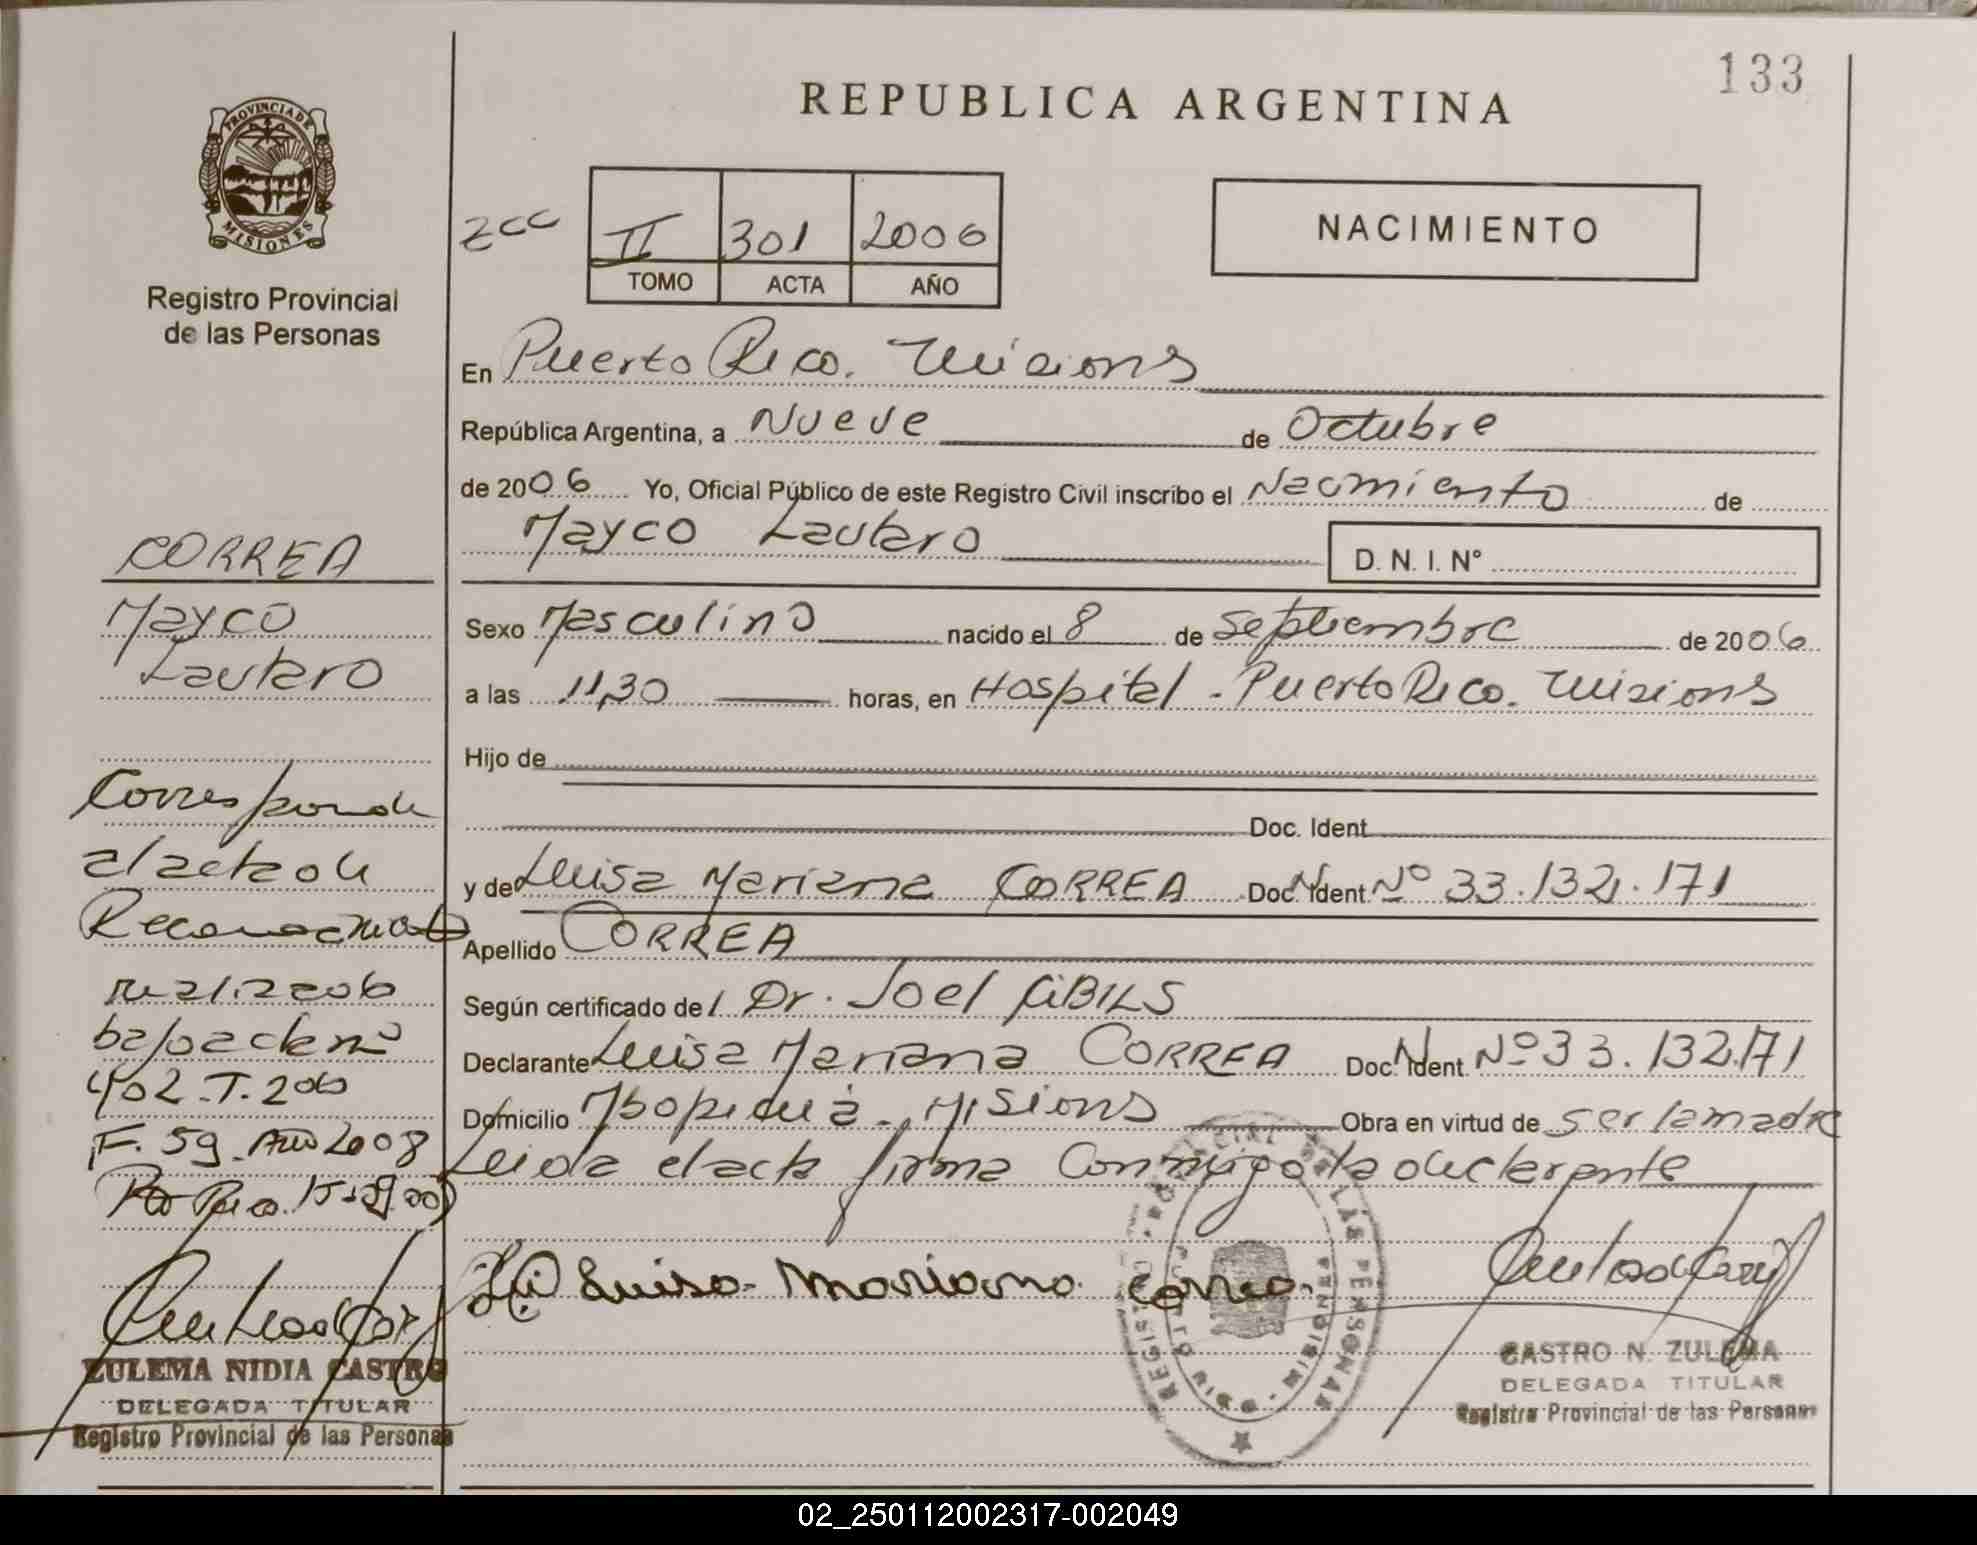 133
REPUBLICA ARGENTINA
PROVINCIA DE
MISIONES
Registro Provincial
de las Personas
zcc
II 301 2006
TOMO ACTA AÑO
NACIMIENTO
En Puerto Rico. Misions
República Argentina, a Nueve de Octubre
de 2006 Yo, Oficial Público de este Registro Civil inscribo el Nacimiento de
Mayco Lautaro D. N. I. N°
Sexo Masculino nacido el 8 de Septiembre de 2006
a las 11,30 horas, en Hospital - Puerto Rico. Misions
Hijo de
Doc. Ident.
y de Luisa Mariana CORREA Doc. Ident. N° 33.132.171
Apellido CORREA
Según certificado del Dr. Joel CIBILS
Declarante Luisa Mariana CORREA Doc. Ident. N° 33.132.171
Domicilio Misions Obra en virtud de ser la madre
Leida el acta firma Conmigo la declarante
Luisa Mariana Correa.
CASTRO N. ZULEMA
DELEGADA TITULAR
Registro Provincial de las Personas
CORREA
Mayco
Lautaro
Corresponde
al acta de
Reconocimiento
bajo acta n°
402.T.
F. 59. Año 2008
Pto Rico.
ZULEMA NIDIA CASTRO
DELEGADA TITULAR
Registro Provincial de las Personas
REGISTRO PROVINCIAL DE LAS PERSONAS
02_250112002317-002049